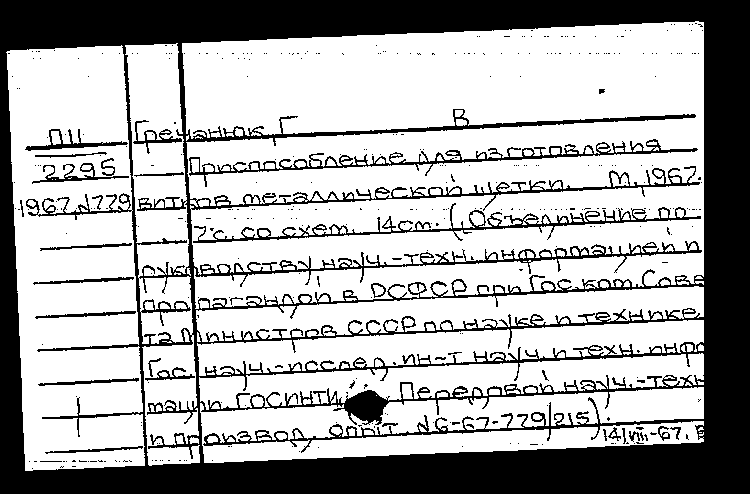 П11 Гречанюк, Г В
2295 Приспособление для изготовления
1967, №779 витков металлической щетки. М, 1967.
7 с. со схем. 14 см. (Объединение по
руководству науч.-техн. информацией и
пропагандой в РСФСР при Гос. ком. Сове
та Министров СССР по науке и технике.
Гос. науч.-исслед. ин-т науч. и техн. инфо
мации. ГОСИНТИ Передовой науч.-техн
и производ. опыт. №6-67-779/215).
14/VIII-67. В